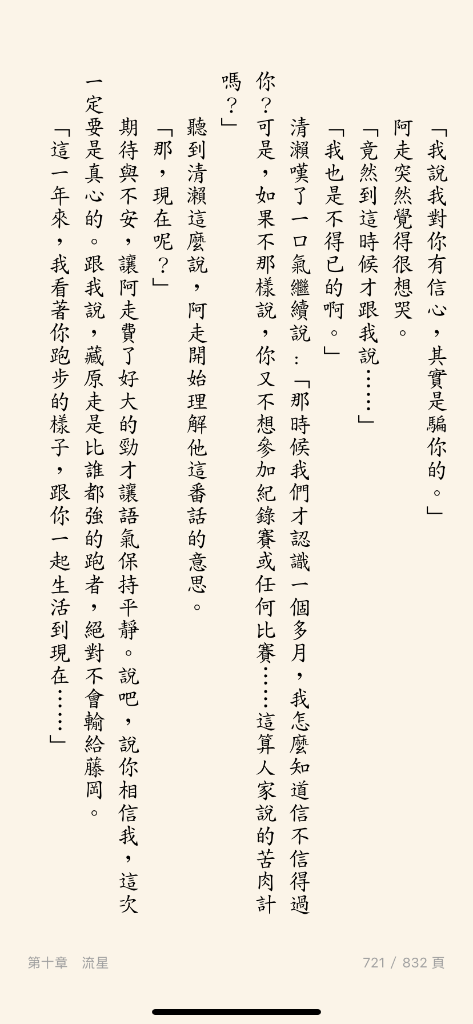 「我說我對你有信心，其實是騙你的。」
阿走突然覺得很想哭。
「竟然到這時候才跟我說……」
「我也是不得已的啊。」
清瀨嘆了一口氣繼續說：「那時候我們才認識一個多月，我怎麼知道信不信得過
你？可是，如果不那樣說，你又不想參加紀錄賽或任何比賽……這算人家說的苦肉計
嗎？」
聽到清瀨這麼說，阿走開始理解他這番話的意思。
「那，現在呢？」
期待與不安，讓阿走費了好大的勁才讓語氣保持平靜。說吧，說你相信我，這次
一定要是真心的。跟我說，藏原走是比誰都強的跑者，絕對不會輸給藤岡。
「這一年來，我看著你跑步的樣子，跟你一起生活到現在……」
第十章　流星
721 / 832 頁